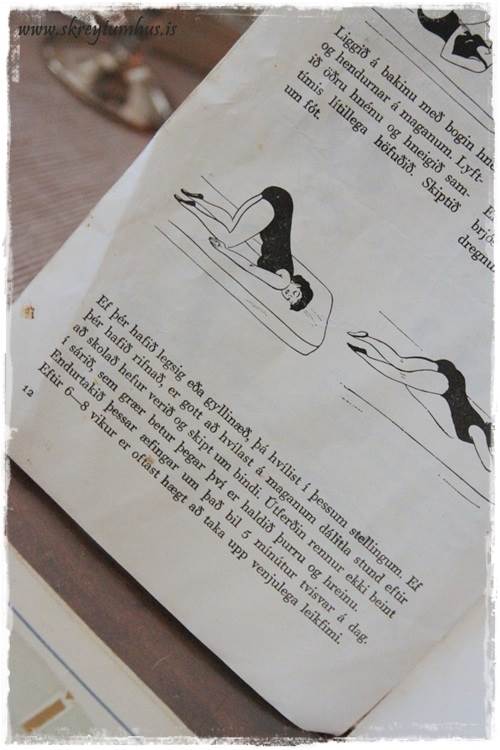 www.skreytumhus.is
Liggið á bakinu með bogin
og hendurnar á maganum. Lyft-
ið öðru hnénu og hneigið sam-
tímis lítillega höfuðið. Skiptið
um fót.
Ef þér hafið legsig eða gyllinæð, þá hvílist í þessum stellingum. Ef
þér hafið rifnað, er gott að hvílast á maganum dálitla stund eftir
að skolað hefur verið og skipt um bindi. Útferðin rennur ekki beint
í sárið, sem grær betur þegar því er haldið þurru og hreinu.
Endurtakið þessar æfingar um það bil 5 mínútur tvisvar á dag.
Eftir 6—8 vikur er oftast hægt að taka upp venjulega leikfimi.
12